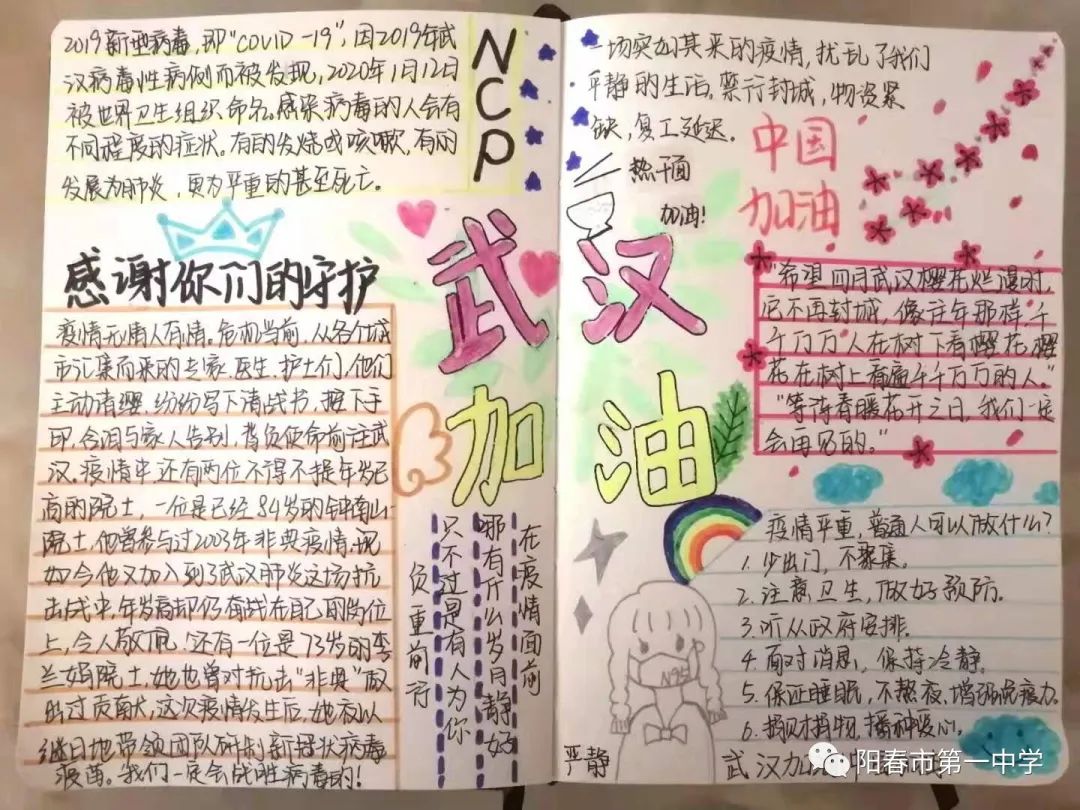 2019新型病毒,即“COVID-19”,因2019年武
汉病毒性病例而被发现,2020年1月12日
被世界卫生组织命名。感染病毒的人会有
不同程度的症状。有的发烧或咳嗽,有的
发展为肺炎,更为严重的甚至死亡。
NCP
感谢你们的守护
疫情无情人有情,危机当前,从各个城
市汇集而来的专家、医生、护士们,他们
主动请缨,纷纷写下请战书,按下手
印,含泪与家人告别,背负使命前往武
汉。疫情中还有两位不得不提年岁已
高的院士,一位是已经84岁的钟南山
院士,他曾参与过2003年非典疫情,现
如今他又加入到了武汉肺炎这场抗
击战中,年岁高却仍有战在自己的岗位
上,令人敬佩。还有一位是73岁的李
兰娟院士,她也曾对抗击“非典”做
出过贡献,这次疫情发生后,她夜以
继日地带领团队研制新冠状病毒
疫苗。我们一定会战胜病毒的!
武汉
加油
在疫情面前
哪有什么岁月静好
只不过是有人为你
负重前行
一场突如其来的疫情,扰乱了我们
平静的生活。禁行封城,物资紧
缺,复工延迟。
热干面
加油!
中国
加油
“希望四月武汉樱花烂漫时,
它不再封城,像往年那样,千
千万万人在树下看樱花,樱
花在树上看遍千千万万的人。”
“等待春暖花开之日,我们一定
会再见的。”
疫情严重,普通人可以做什么?
1.少出门,不聚集。
2.注意卫生,做好预防。
3.听从政府安排。
4.面对消息,保持冷静。
5.保证睡眠,不熬夜,增强免疫力。
6.捐财捐物,播种爱心。
N95
严静
武汉加油
阳春市第一中学